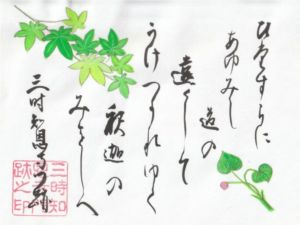 ひたすらに
あゆみし
道の
遠くして
うけつがれゆく
釈迦の
みをしへ
三時知恩寺
三時知
跡之印